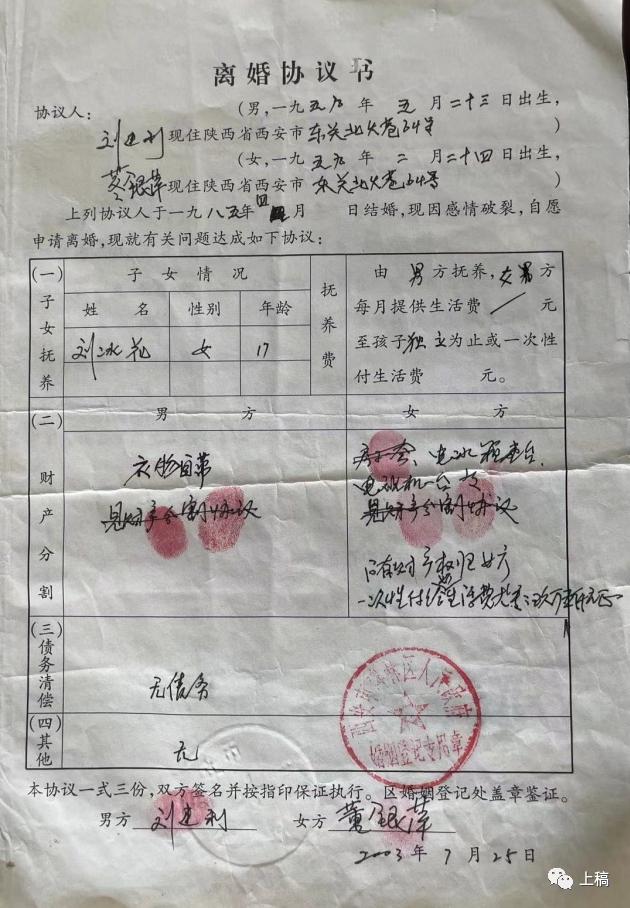 离婚协议书
协议人： (男，一九五九年五月二十三日出生，
刘建利现住陕西省西安市东关北火巷64号)
(女，一九五九年二月二十四日出生，
董银萍现住陕西省西安市东关北火巷64号)
上列协议人于一九八五年四月 日结婚，现因感情破裂，自愿
申请离婚，现就有关问题达成如下协议：
(一)子女抚养
子女情况
姓名 性别 年龄
刘冰花 女 17
抚养费
由男方抚养，女方
每月提供生活费/元
至孩子独立为止或一次性
付生活费 元。
(二)财产分割
男方 女方
衣物自带
见财产分割协议
电冰箱壹台、
电视机一台
见财产分割协议
所有财产权归女方
一次性付给生活费
(三)债务清偿
无债务
(四)其他
无
西安市碑林区人民政府
婚姻登记专用章
本协议一式三份，双方签名并按指印保证执行。区婚姻登记处盖章鉴证。
男方 刘建利 女方 董银萍
2003年7月25日
上稿